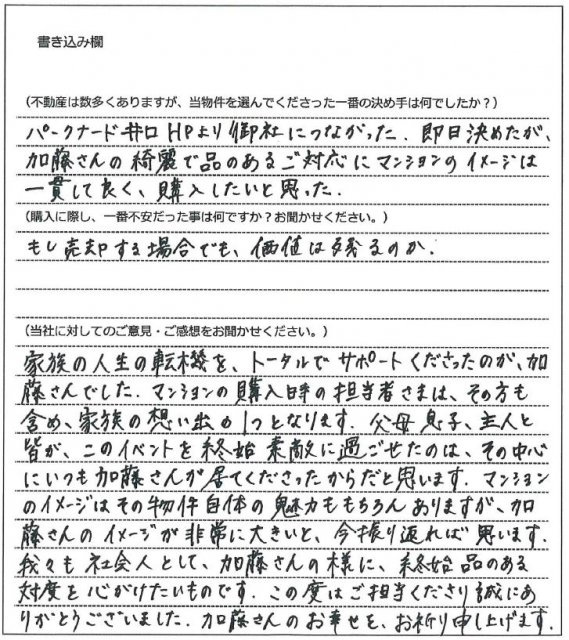 書き込み欄
（不動産は数多くありますが、当物件を選んでくださった一番の決め手は何でしたか？）
パークナード井口HPより御社につながった．即日決めたが、
加藤さんの綺麗で品のあるご対応にマンションのイメージは
一貫して良く、購入したいと思った．
（購入に際し、一番不安だった事は何ですか？お聞かせください。）
もし売却する場合でも、価値は残るのか．
（当社に対してのご意見・ご感想をお聞かせください。）
家族の人生の転機を、トータルでサポートくださったのが、加
藤さんでした．マンションの購入時の担当者さまは、その方も
含め、家族の想い出の1つとなります．父母息子、主人と
皆が、このイベントを終始素敵に過ごせたのは、その中心
にいつも加藤さんが居てくださったからだと思います．マンション
のイメージはその物件自体の魅力ももちろんありますが、加
藤さんのイメージが非常に大きいと、今振り返れば思います．
我々も社会人として、加藤さんの様に、終始品のある
対度を心がけたいものです．この度はご担当くださり誠にあ
りがとうございました．加藤さんのお幸せを、お祈り申し上げます．